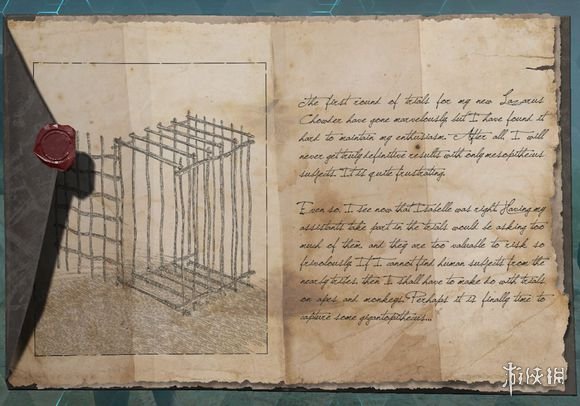 The first round of trials for my new Lazarus
Chowder have gone marvelously but I have found it
hard to maintain my enthusiasm. After all, I will
never get truly definitive results with only mesopithecus
subjects. It is quite frustrating.
Even so, I see now that Isabelle was right. Having my
assistants take part in the trials would be asking too
much of them, and they are too valuable to risk so
frivolously. If I cannot find human subjects from the
nearby tribes, then I shall have to make do with trials
on apes and monkeys. Perhaps it is finally time to
capture some gigantopithecus...
游侠网